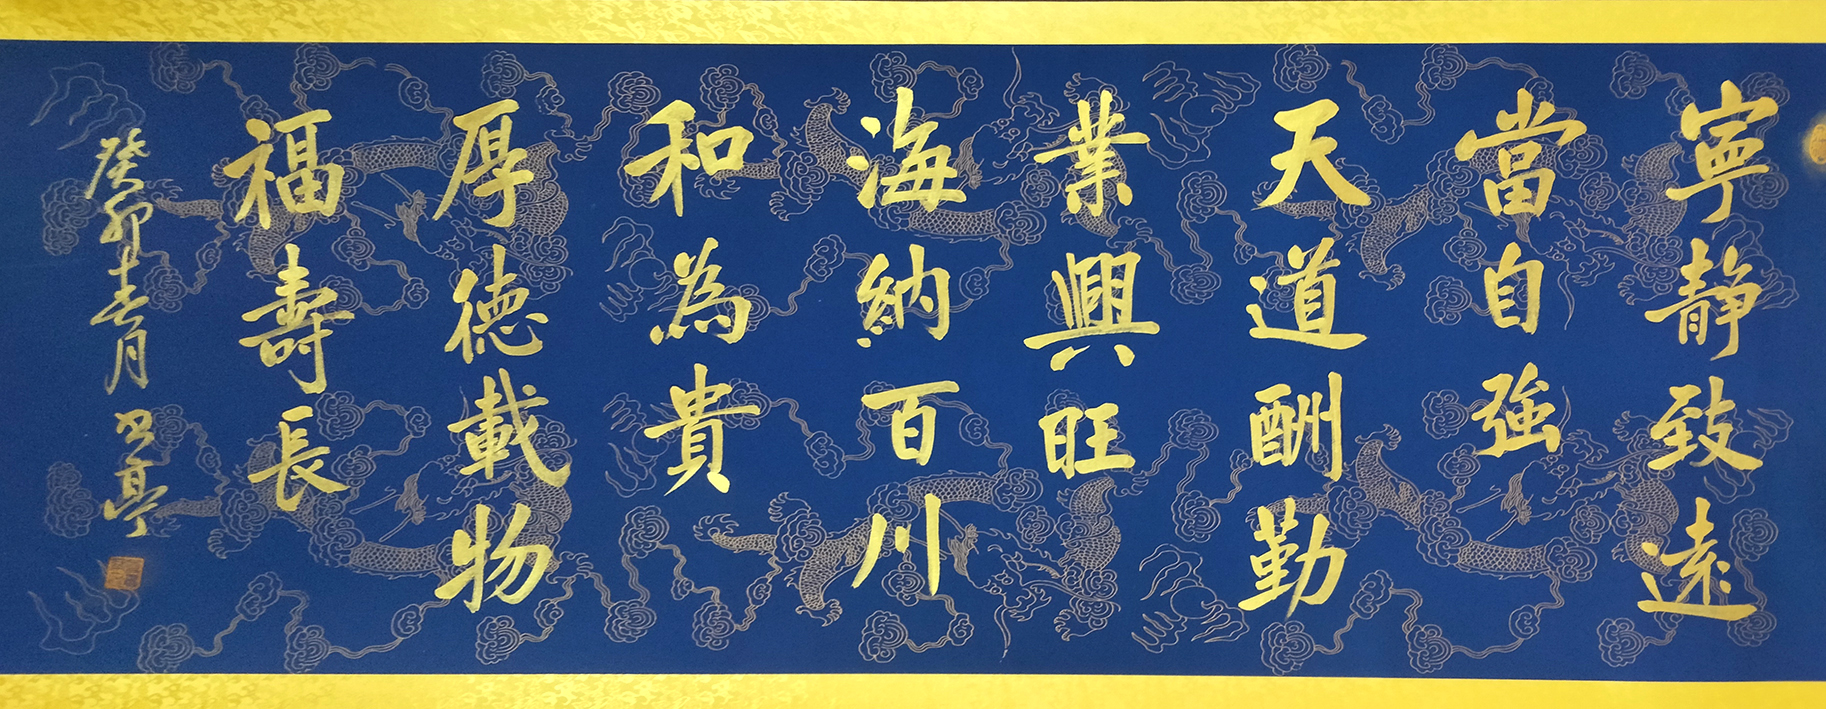 寧静致遠
當自強
天道酬勤
業興旺
海納百川
和為貴
厚德載物
福壽長
癸卯 月 亭